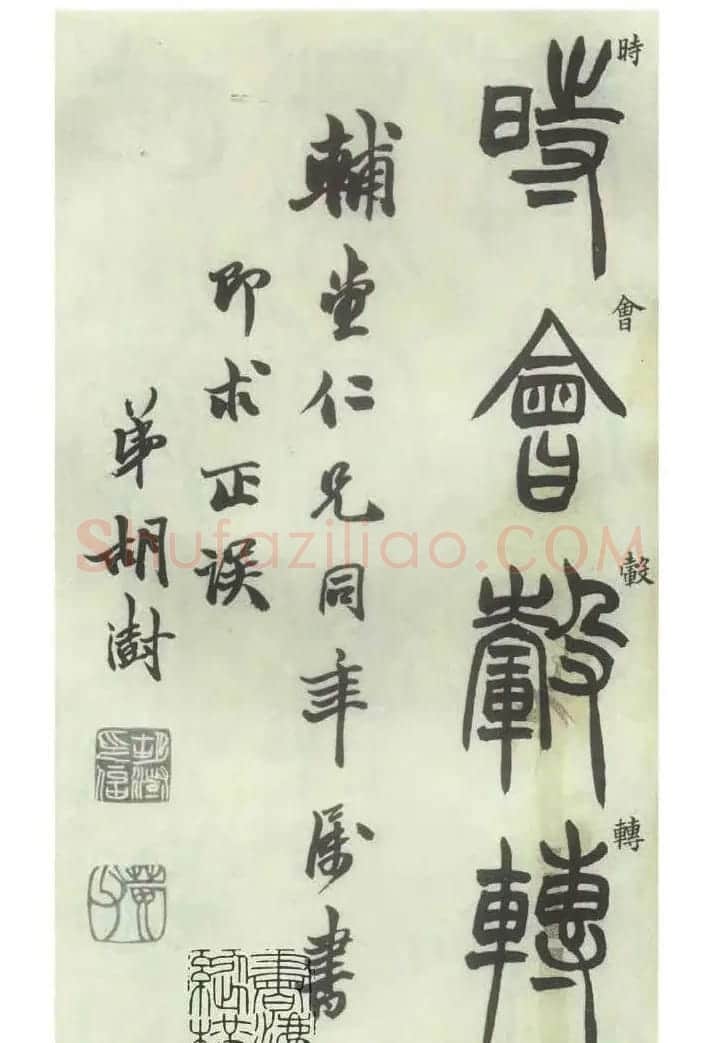 時會轂轉
時會轂轉
輔堂仁兄同年属書
即求正誤
弟胡澍
胡澍印信
Shufaziliao.COM